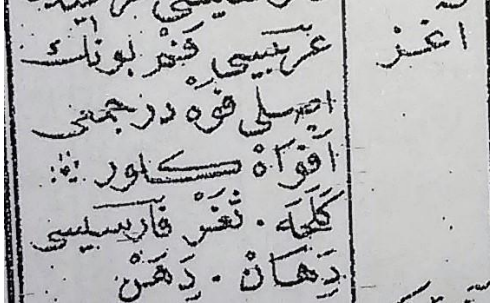 اغز
عربیسی فَمْدر بونك
اصلی فوَهْ در جمعی
اَفْوَاهْ كلور
كَلَجَه . ثَغَرْ فارسیسی
دِهَانْ . دَهَنْ